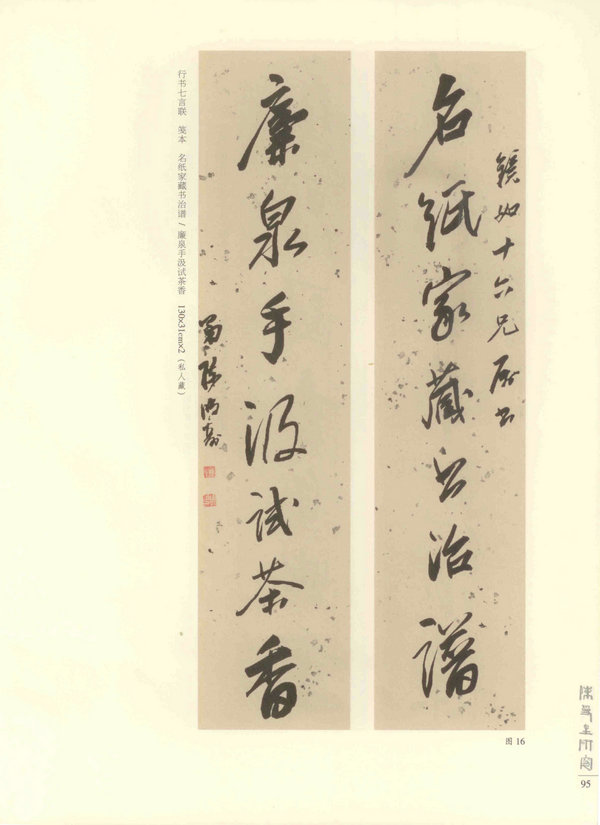 名纸家藏书治谱
镁如十六兄属书
廉泉手汲试茶香
曼生陈鸿寿
行书七言联 笺本 名纸家藏书治谱／廉泉手汲试茶香 130×31cm×2（私人藏）
图 16
95